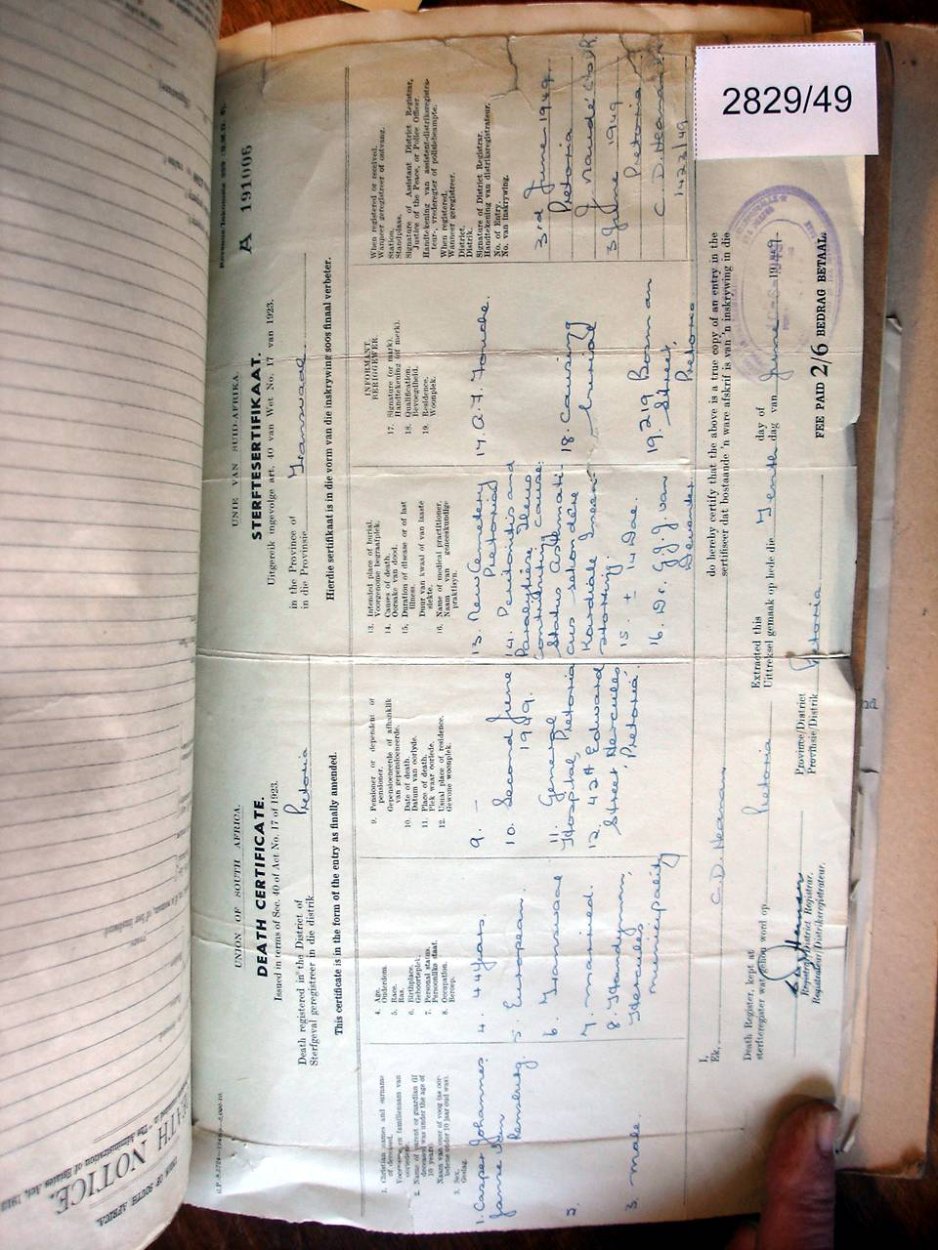 2829/49
G.P.-S.
Revenue/Inkomste
A 191006
UNION OF SOUTH AFRICA.
UNIE VAN SUID-AFRIKA.
DEATH CERTIFICATE.
STERFTESERTIFIKAAT.
Issued in terms of Sec. 40 of Act No. 17 of 1923.
Uitgereik ingevolge art. 40 van Wet No. 17 van 1923.
Death registered in the District of
Sterfgeval geregistreer in die distrik
Pretoria
in the Province of
in die Provinsie
Transvaal.
This certificate is in the form of the entry as finally amended.
Hierdie sertifikaat is in die vorm van die inskrywing soos finaal verbeter.
1. Christian names and surname
of deceased.
Voorname en familienaam van
oorledene.
2. Name of parent or guardian (if
deceased was under the age of
10 years
Naam van ouer of voog (as oor-
ledene onder 10 jaar oud was).
3. Sex.
Geslag.
4. Age.
Ouderdom.
5. Race.
Ras.
6. Birthplace.
Geboorteplek.
7. Personal status.
Persoonlike staat.
8. Occupation.
Beroep.
9. Pensioner or dependent of
pensioner.
Gepensioeneerde of afhanklik
van gepensioeneerde.
10. Date of death.
Datum van oorlyde.
11. Place of death.
Plek waar oorlede.
12. Usual place of residence.
Gewone woonplek.
13. Intended place of burial.
Voorgenome begraafplek.
14. Causes of death.
Oorsake van dood.
15. Duration of disease or of last
illness.
Duur van kwaal of van laaste
siekte.
16. Name of medical practitioner.
Naam van geneeskundige
praktisyn.
INFORMANT.
BERIGGEWER.
17. Signature (or mark).
Handtekening (of merk).
18. Qualification.
Bevoegdheid.
19. Residence.
Woonplek.
When registered or received.
Wanneer geregistreer of ontvang.
Station.
Standplaas.
Signature of Assistant District Registrar,
Justice of the Peace, or Police Officer
Handtekening van assistent-distriksregistra-
teur, vrederegter of polisiebeampte.
When registered.
Wanneer geregistreer.
District.
Distrik.
Signature of District Registrar.
Handtekening van distriksregistrateur.
No. of Entry.
No. van Inskrywing.
1. Casper Johannes
Janse Van
Rensburg.
2.
3. male.
4. 44 years.
5. European.
6. Transvaal
7. married.
8. Handyman,
Hercules
municipality
9. -
10. Second June
1949.
11. General
Hospital, Pretoria
12. 424 Edward
Street Hercules
Pretoria.
13. New Cemetery
Pretoria
14. Peritonitis and
Paralytic Ileus
Contributing cause:
Status Asthmati-
cus sekondêre
Kardiale Ineen-
storting.
15. ± 14 Dae.
16. Dr. G. J. J. van
Deventer
17. A. F. Fouche.
18. Causing
burial
19. 219 Boom an
Street,
Pretoria
3rd June 1949
Pretoria
J. Naude Clerk
3 June 1949
Pretoria
C. D. Heaman
1423/49
I,
Ek,
C. D. Heaman
do hereby certify that the above is a true copy of an entry in the
sertifiseer dat bostaande 'n ware afskrif is van 'n inskrywing in die
Death Register, kept at
sterfteregister wat gehou word op
Pretoria
Extracted this
Uittreksel gemaak op hede die
Tenth
day of
dag van
June
1949.
Registrar/District Registrar.
Registrateur/Distriksregistrateur.
Province/District
Provinsie/Distrik
Pretoria
FEE PAID 2/6 BEDRAG BETAAL.
OF SOUTH AFRICA.
DEATH NOTICE.